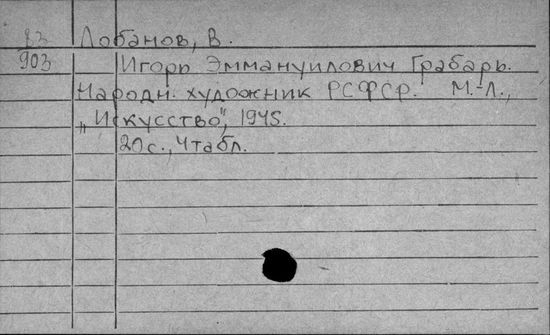 83 Лобанов, В.
903 Игорь Эммануилович Грабарь.
Народн. художник РСФСР. М.-Л.,
„Искусство", 1945.
20 с., 4 табл.